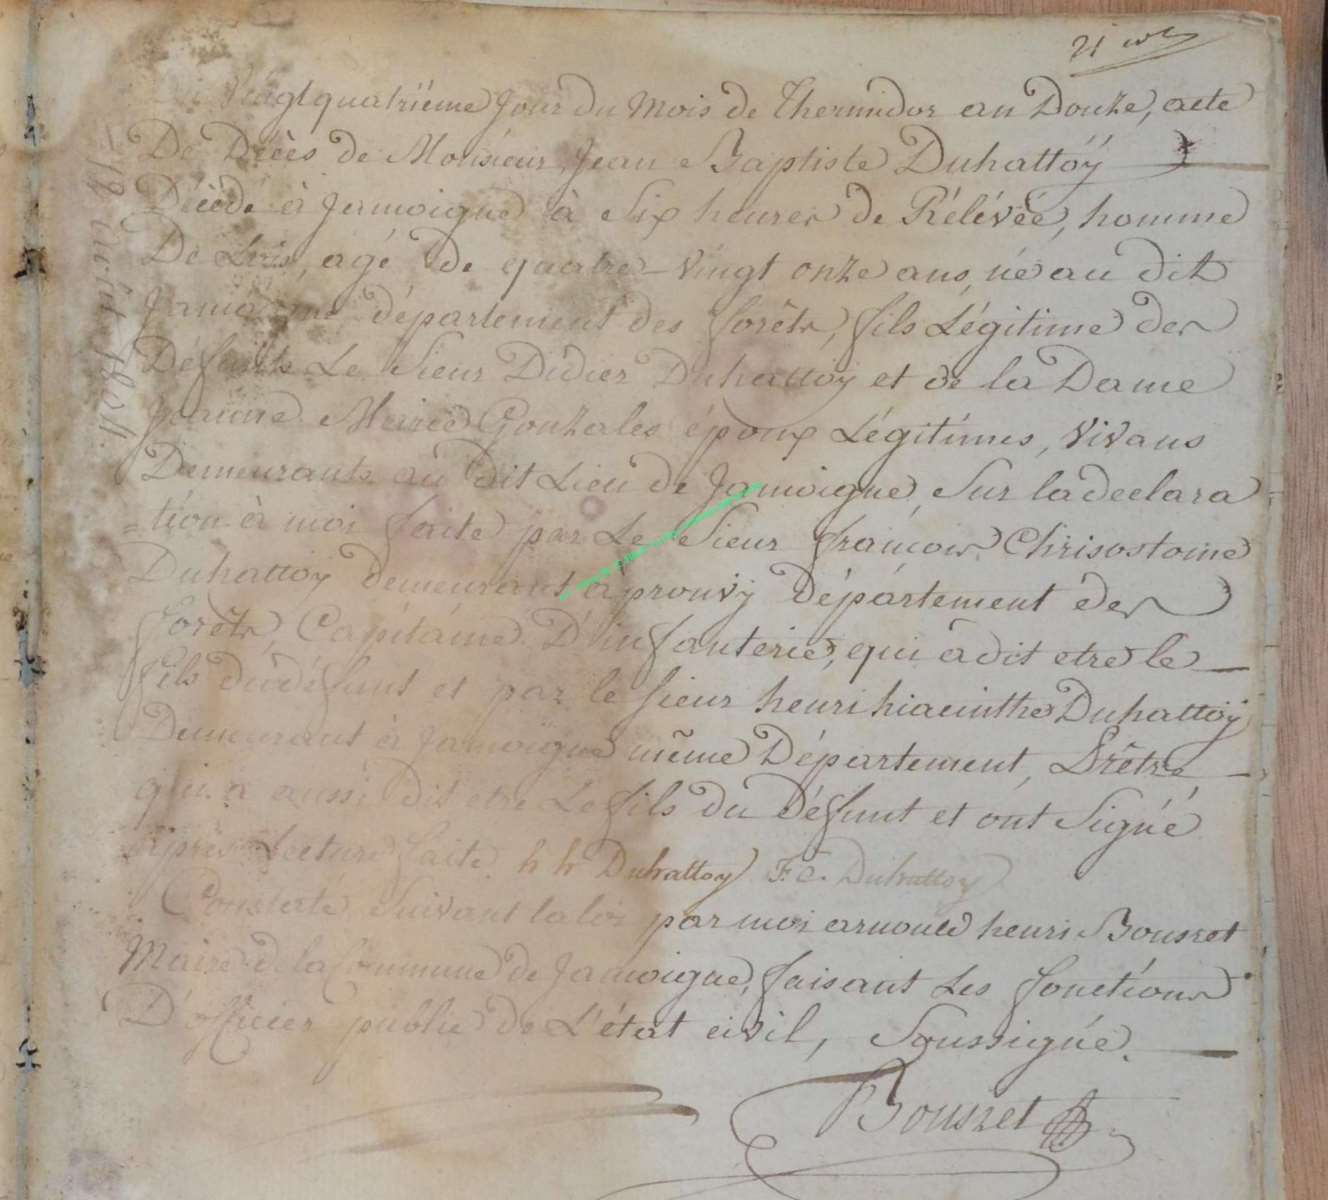 Du Vingt quatrième Jour du Mois de Thermidor an Douze, acte
De Décès de Monsieur Jean Baptiste Duhattoÿ
Décédé à Jamoigne à Six heures de Rélévée, homme
De Lois, agé de quatre-vingt onze ans, né au dit
Jamoigne département des forêts, fils Légitime des
Défunts Le Sieur Didier Duhattoÿ et de la Dame
Jeanne Gonzales époux Légitimes, vivans
Demeurants au dit Lieu de Jamoigne, Sur la declara
=tion à moi faite par Le Sieur françois Chrisostome
Duhattoÿ demeurant à prouvÿ Département des
forêts, Capitaine D'infanterie, qui a dit etre le
fils du défunt et par le sieur henri hiacinthe Duhattoÿ
Demeurant à Jamoigne même Département, Prêtre
qui a aussi dit etre Le fils du Défunt et ont Signé
après Lecture faite. h h Duhattoy F. C. Duhattoy
Constaté Suivant la loi par moi arnould henri Bousret
Maire de la Commune de Jamoigne, faisant Les fonctions
D'officier public de L'état civil, Soussigné.
Bousret